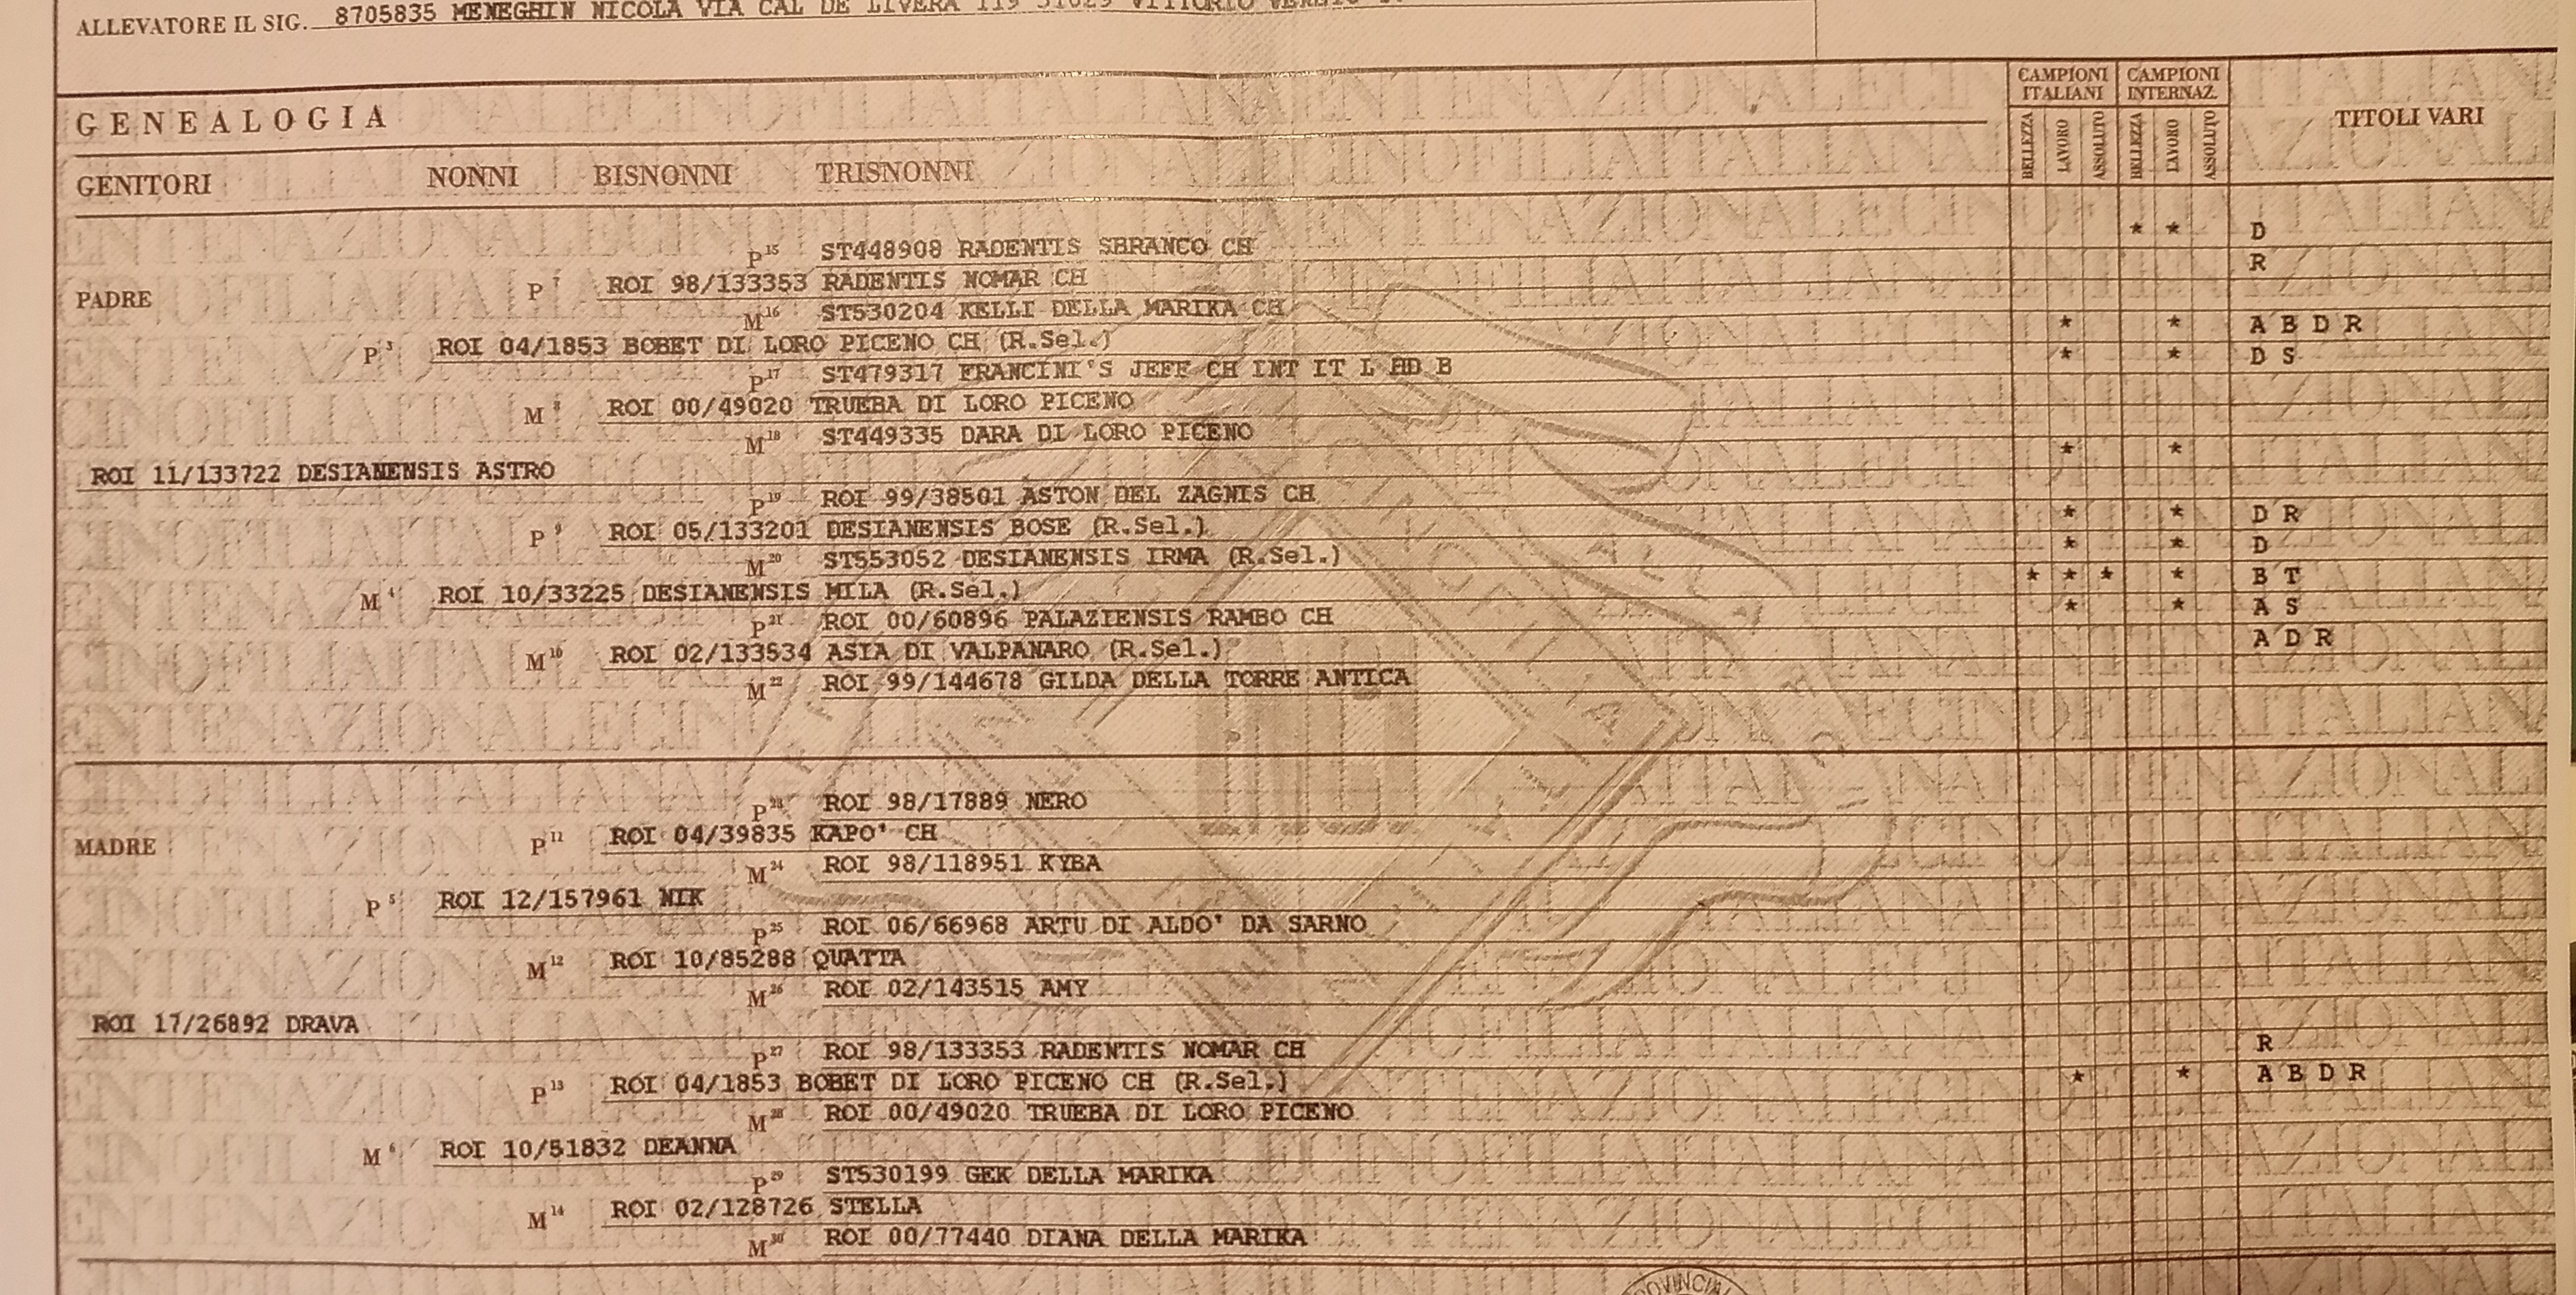 ALLEVATORE IL SIG. 8705835 MENEGHIN NICOLA VIA CAL DE LIVERA 119 31029 VITTORIO VENETO
CAMPIONI ITALIANI CAMPIONI INTERNAZ. TITOLI VARI
GENEALOGIA
BELLEZZA LAVORO ASSOLUTO BELLEZZA LAVORO ASSOLUTO
GENITORI NONNI BISNONNI TRISNONNI
* * D
P15 ST448908 RADENTIS SBRANCO CH
R
P7 ROI 98/133353 RADENTIS NOMAR CH
PADRE
M16 ST530204 KELLI DELLA MARIKA CH
* * A B D R
P3 ROI 04/1853 BOBET DI LORO PICENO CH (R.Sel.)
* * D S
P17 ST479317 FRANCINI'S JEFF CH INT IT L HD B
M8 ROI 00/49020 TRUEBA DI LORO PICENO
M18 ST449335 DARA DI LORO PICENO
* *
ROI 11/133722 DESIANENSIS ASTRO
P19 ROI 99/38501 ASTON DEL ZAGNIS CH
* * D R
P9 ROI 05/133201 DESIANENSIS BOSE (R.Sel.)
* * D
M20 ST553052 DESIANENSIS IRMA (R.Sel.)
* * * * B T
M4 ROI 10/33225 DESIANENSIS MILA (R.Sel.)
* * A S
P21 ROI 00/60896 PALAZIENSIS RAMBO CH
A D R
M10 ROI 02/133534 ASIA DI VALPANARO (R.Sel.)
M22 ROI 99/144678 GILDA DELLA TORRE ANTICA
P23 ROI 98/17889 NERO
P11 ROI 04/39835 KAPO' CH
MADRE
M24 ROI 98/118951 KYBA
P5 ROI 12/157961 NIK
P25 ROI 06/66968 ARTU DI ALDO' DA SARNO
M12 ROI 10/85288 QUATTA
M26 ROI 02/143515 AMY
ROI 17/26892 DRAVA
P27 ROI 98/133353 RADENTIS NOMAR CH R
P13 ROI 04/1853 BOBET DI LORO PICENO CH (R.Sel.) * * A B D R
M28 ROI 00/49020 TRUEBA DI LORO PICENO
M6 ROI 10/51832 DEANNA
P29 ST530199 GEK DELLA MARIKA
M14 ROI 02/128726 STELLA
M30 ROI 00/77440 DIANA DELLA MARIKA